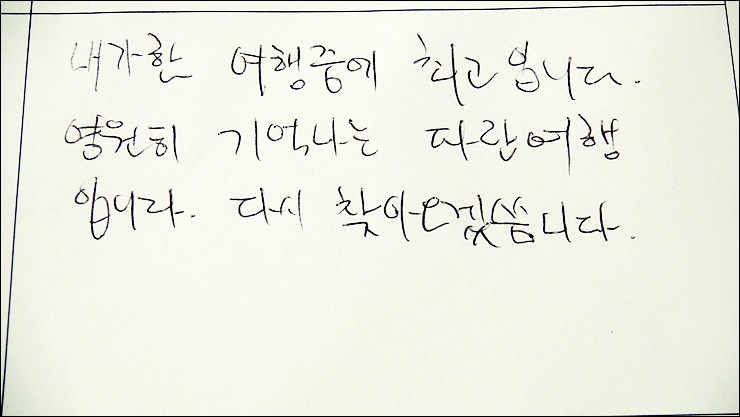 내가한 여행중에 최고 입니다.
영원히 기억나는 다란여행
입니다. 다시 찾아오겠씀니다.